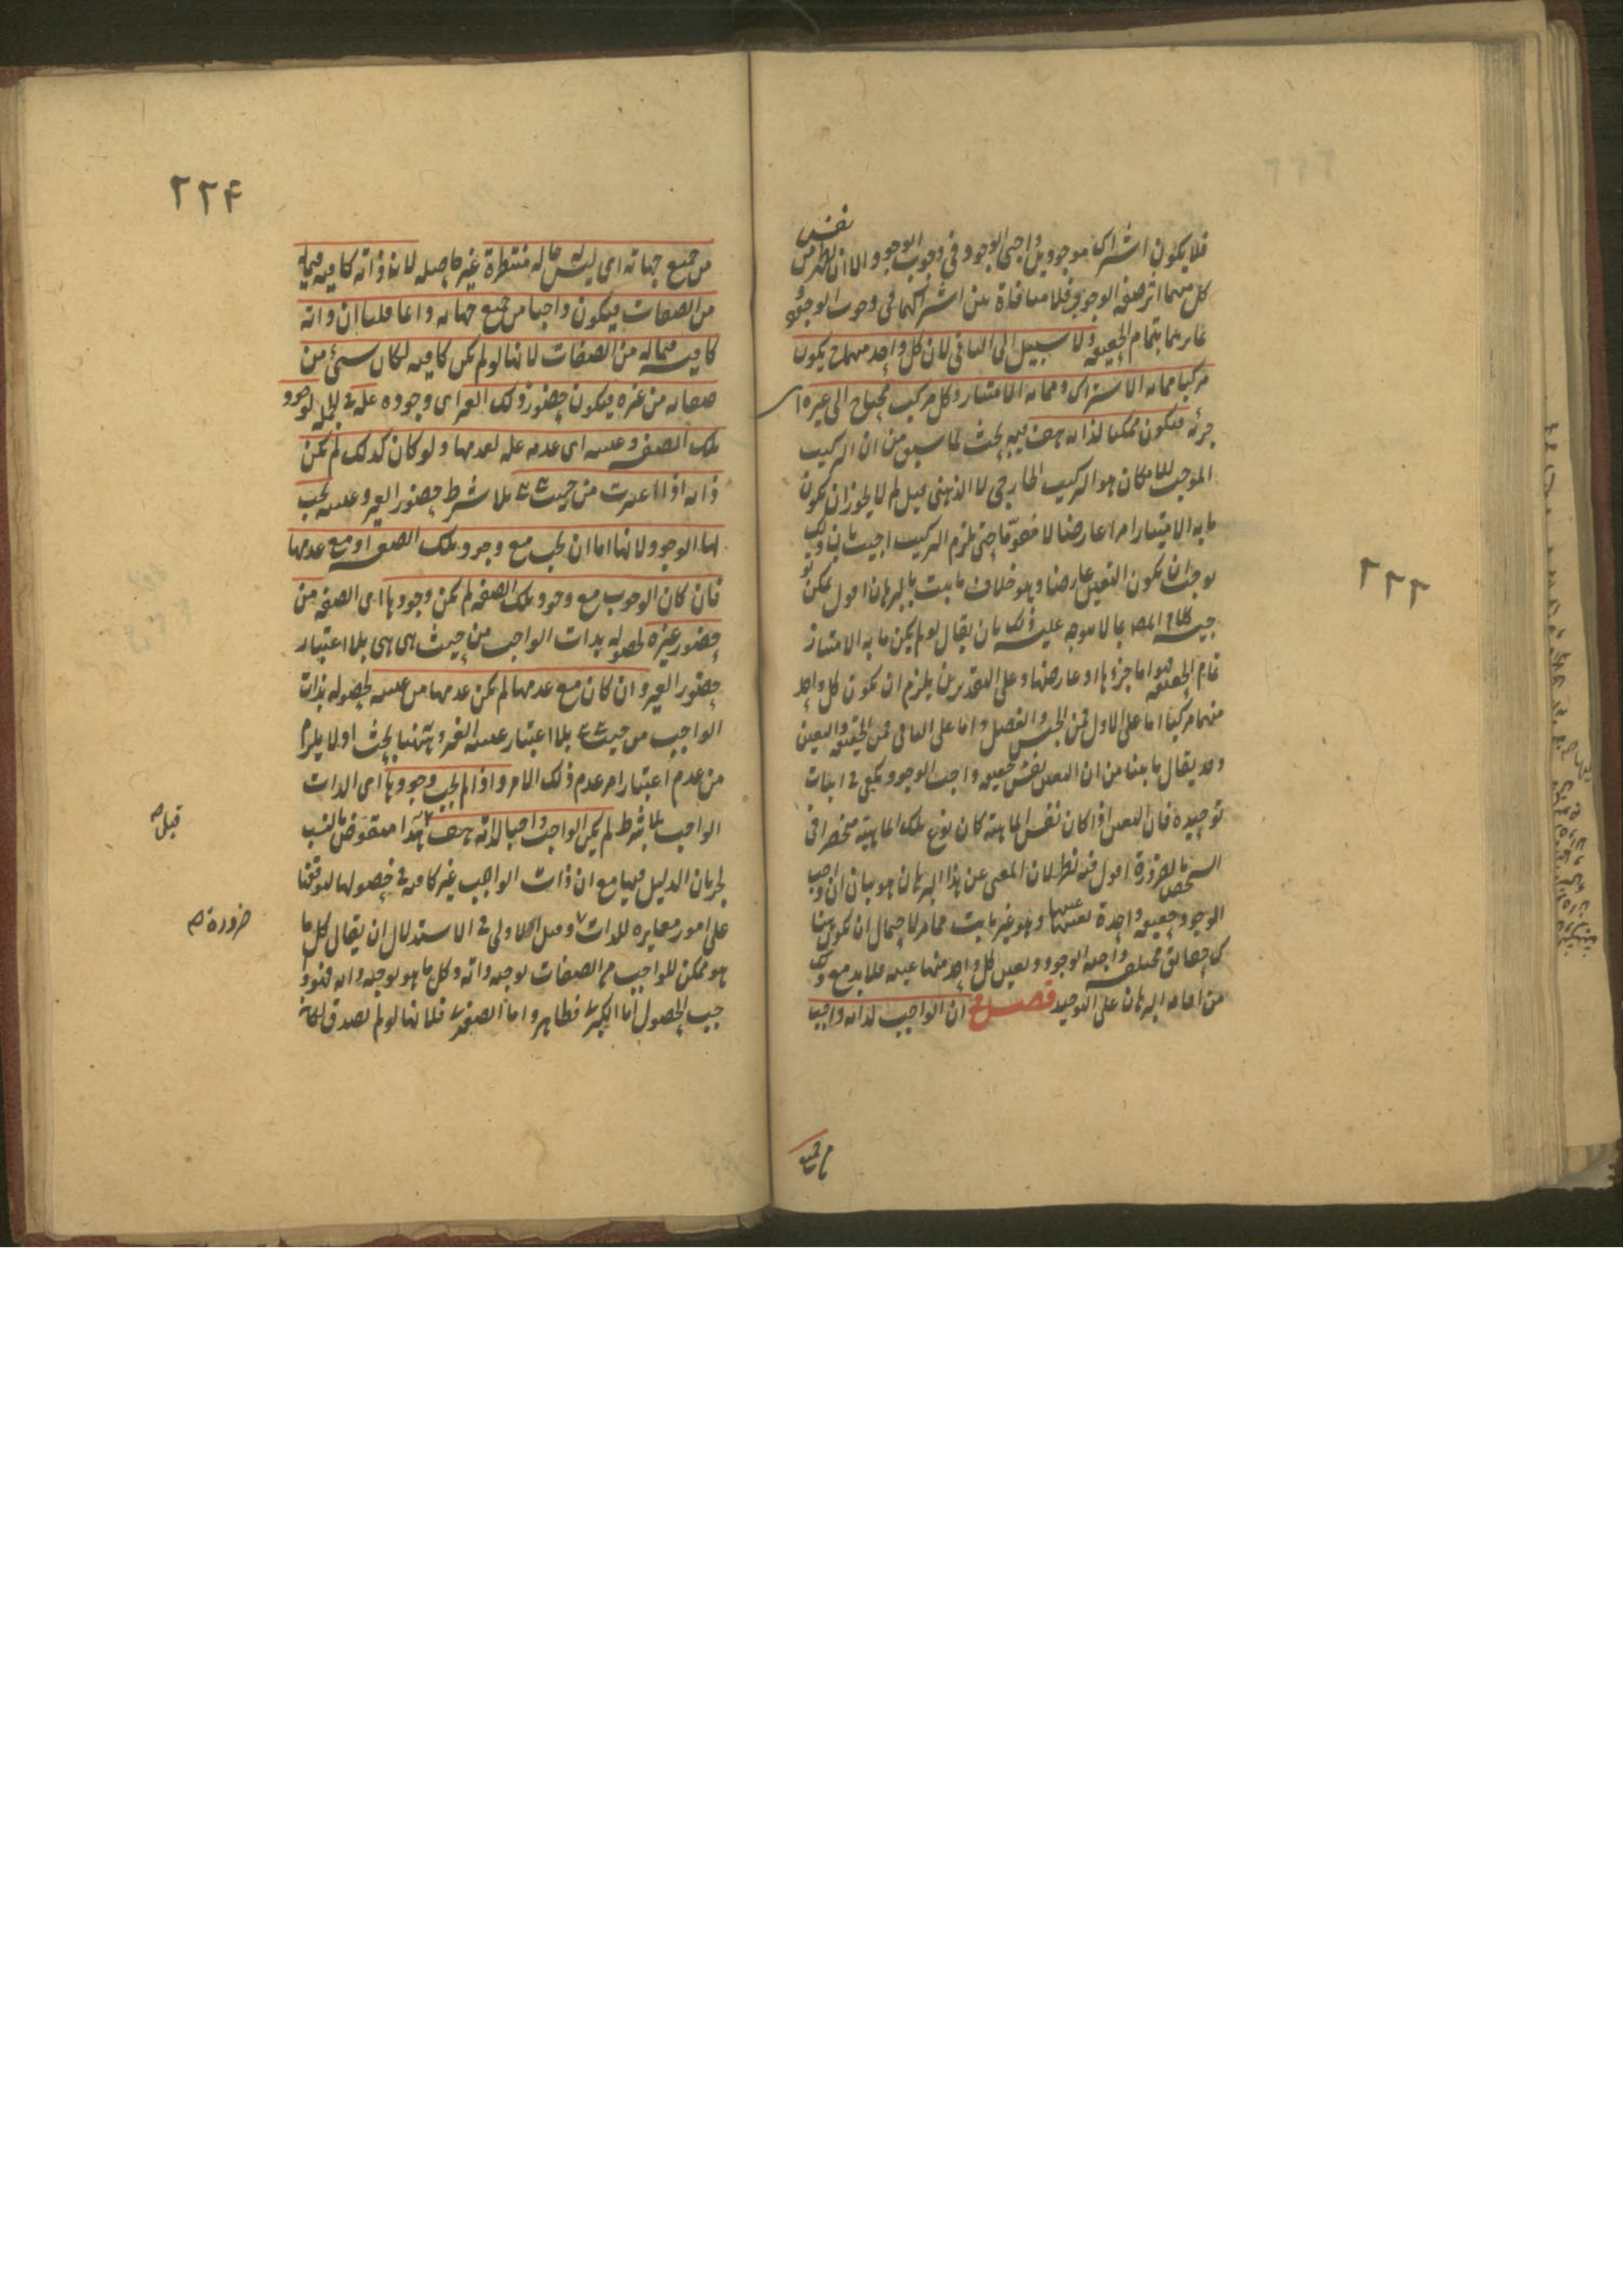 ٢٢٣
نفس
فلا يكون اشتراك موجودين واجبي الوجود في وجوب الوجود الا ان يظهر من
كل منهما اثر صفة الوجوب فلا منافاة بين اشتراكهما في وجوب الوجود و
تمايزهما بتمام الحقيقة ولا سبيل الى الثاني لان كل واحد منهما ح يكون
مركبا مما به الاشتراك ومما به الامتياز وكل مركب محتاج الى غيره ا
جزئه فيكون ممكنا لذاته هف فيه بحث لما سبق من ان التركيب
الموجب للامكان هو التركيب الخارجي لا الذهني قيل لم لا يجوز ان يكون
ما به الامتياز امرا عارضا لا مقوما حتى يلزم التركيب اجيب بان ذلك
يوجب ان يكون التعين عارضا وهو خلاف ما ثبت بالبرهان اقول يمكن تو
جيه كلام المصـ بما لا يتوجه عليه ذلك بان يقال لو لم يكن ما به الامتياز
تمام الحقيقة فهو اما جزؤها او عارضها وعلى التقديرين يلزم ان يكون كل واحد
منهما مركبا اما على الاول فمن الجنس والفصل واما على الثاني فمن الحقيقة والتعين
وقد يقال ما بينا من ان التعين نفس حقيقة واجب الوجود يكفي في اثبات
توحيده فان التعين اذا كان نفس الماهية كان نوع تلك الماهية منحصرا في
الشخص بالضرورة اقول فيه نظر لان المعنى عن هذا البرهان هو بيان ان واجب
الوجود حقيقة واحدة تعينها عينها وهو غير ثابت مما مر لاحتمال ان يكون هنا
ك حقائق مختلفة واجبة الوجود وتعين كل واحد منها عينه فلا بد مع ذلك
من اقامة البرهان على التوحيد فصل في ان الواجب لذاته واجب
من جميع
٢٢۴
من جميع جهاته اي ليس له حالة منتظرة غير حاصله لان ذاته كافيه فيما له
من الصفات فيكون واجبا من جميع جهاته وانما قلنا ان ذاته
كافيه فيما له من الصفات لانها لو لم يكن كافيه لكان شئ من
صفاته من غيره فيكون حضور ذلك الغير اي وجوده علة في الجملة لوجود
تلك الصفة وغيبته اي عدمه علة لعدمها ولو كان كذلك لم يكن
ذاته اذا اعتبرت من حيث هي هي بلا شرط حضور الغير وغيبته يجب
لها الوجود لانها اما ان يجب مع وجود تلك الصفة او مع عدمها
فان كان الوجوب مع وجود تلك الصفة لم يكن وجودها اى الصفة من
حضور غيره لحصوله بذات الواجب من حيث هي هي بلا اعتبار
حضور الغير وان كان مع عدمها لم يكن عدمها من غيبته لحصوله بذات
الواجب من حيث هي هي بلا اعتبار غيبة الغير وههنا بحث اذ لا يلزم
من عدم اعتبار امر عدم ذلك الامر واذا لم يجب وجودها اى الذات
الواجب بلا شرط لم يكن الواجب واجبا لذاته هف هذا منقوض بالنسب
لجريان الدليل فيها مع ان ذات الواجب غير كافية في حصولها لتوقفها
على امور مغايرة للذات وقيل الاولى في الاستدلال ان يقال كل ما
هو ممكن للواجب من الصفات يوجبه ذاته وكل ما هو يوجبه ذاته فهو وا
جب الحصول اما الكبرى فظاهر واما الصغرى فلانها لو لم تصدق لكان
قبل صح
ضرورة صح